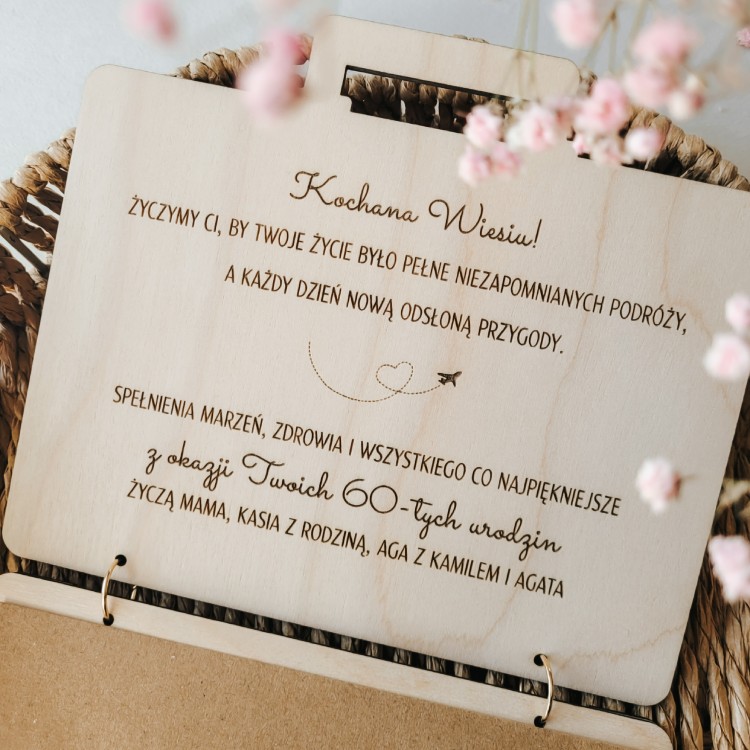 Kochana Wiesiu!
ŻYCZYMY CI, BY TWOJE ŻYCIE BYŁO PEŁNE NIEZAPOMNIANYCH PODRÓŻY,
A KAŻDY DZIEŃ NOWĄ ODSŁONĄ PRZYGODY.
SPEŁNIENIA MARZEŃ, ZDROWIA I WSZYSTKIEGO CO NAJPIĘKNIEJSZE
z okazji Twoich 60-tych urodzin
ŻYCZĄ MAMA, KASIA Z RODZINĄ, AGA Z KAMILEM I AGATA